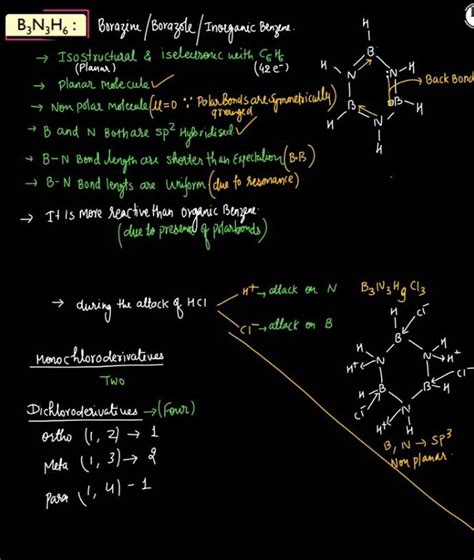 B3N3H6 : Borazine/Borazole/Inorganic Benzene.
→ Isostructural & iselectronic with C6H6
(Planar) (42e-)
→ Planar Molecule ✓
→ Non polar molecule (μ=0 ∵ Polar Bonds are symmetrically arranged)
→ B and N Both are sp2 Hybridised ✓
→ B-N Bond length are shorter than Expectation (B-B)
→ B-N Bond lengths are uniform (due to resonance)
→ It is more reactive than organic Benzene.
(due to presence of polar bonds)
H
B
H N N H
Back Bond
B B
H N H
H
→ during the attack of HCl
H+ → attack on N
Cl- → attack on B
B3N3H9Cl3
Monochloroderivatives
TWO
Dichloroderivatives → (Four)
ortho (1, 2) → 1
Meta (1, 3) → 2
para (1, 4) - 1
H Cl-
B
H N N H
H+ H+
Cl-
B B
H H
Cl- N
H+ H
B, N → sp3
Non planar.